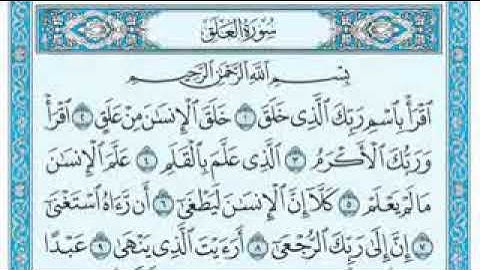 سُورَةُ الْعَلَقِ
بِسْمِ اللَّهِ الرَّحْمَٰنِ الرَّحِيمِ
ٱقْرَأْ بِٱسْمِ رَبِّكَ ٱلَّذِى خَلَقَ ١ خَلَقَ ٱلْإِنسَٰنَ مِنْ عَلَقٍ ٢ ٱقْرَأْ
وَرَبُّكَ ٱلْأَكْرَمُ ٣ ٱلَّذِى عَلَّمَ بِٱلْقَلَمِ ٤ عَلَّمَ ٱلْإِنسَٰنَ
مَا لَمْ يَعْلَمْ ٥ كَلَّآ إِنَّ ٱلْإِنسَٰنَ لَيَطْغَىٰٓ ٦ أَن رَّءَاهُ ٱسْتَغْنَىٰٓ
٧ إِنَّ إِلَىٰ رَبِّكَ ٱلرُّجْعَىٰٓ ٨ أَرَءَيْتَ ٱلَّذِى يَنْهَىٰ ٩ عَبْدًا